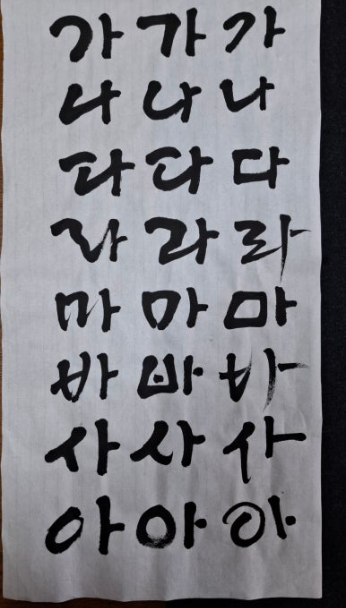 가 가 가
나 나 나
다 다 다
라 라 라
마 마 마
바 바 바
사 사 사
아 아 아